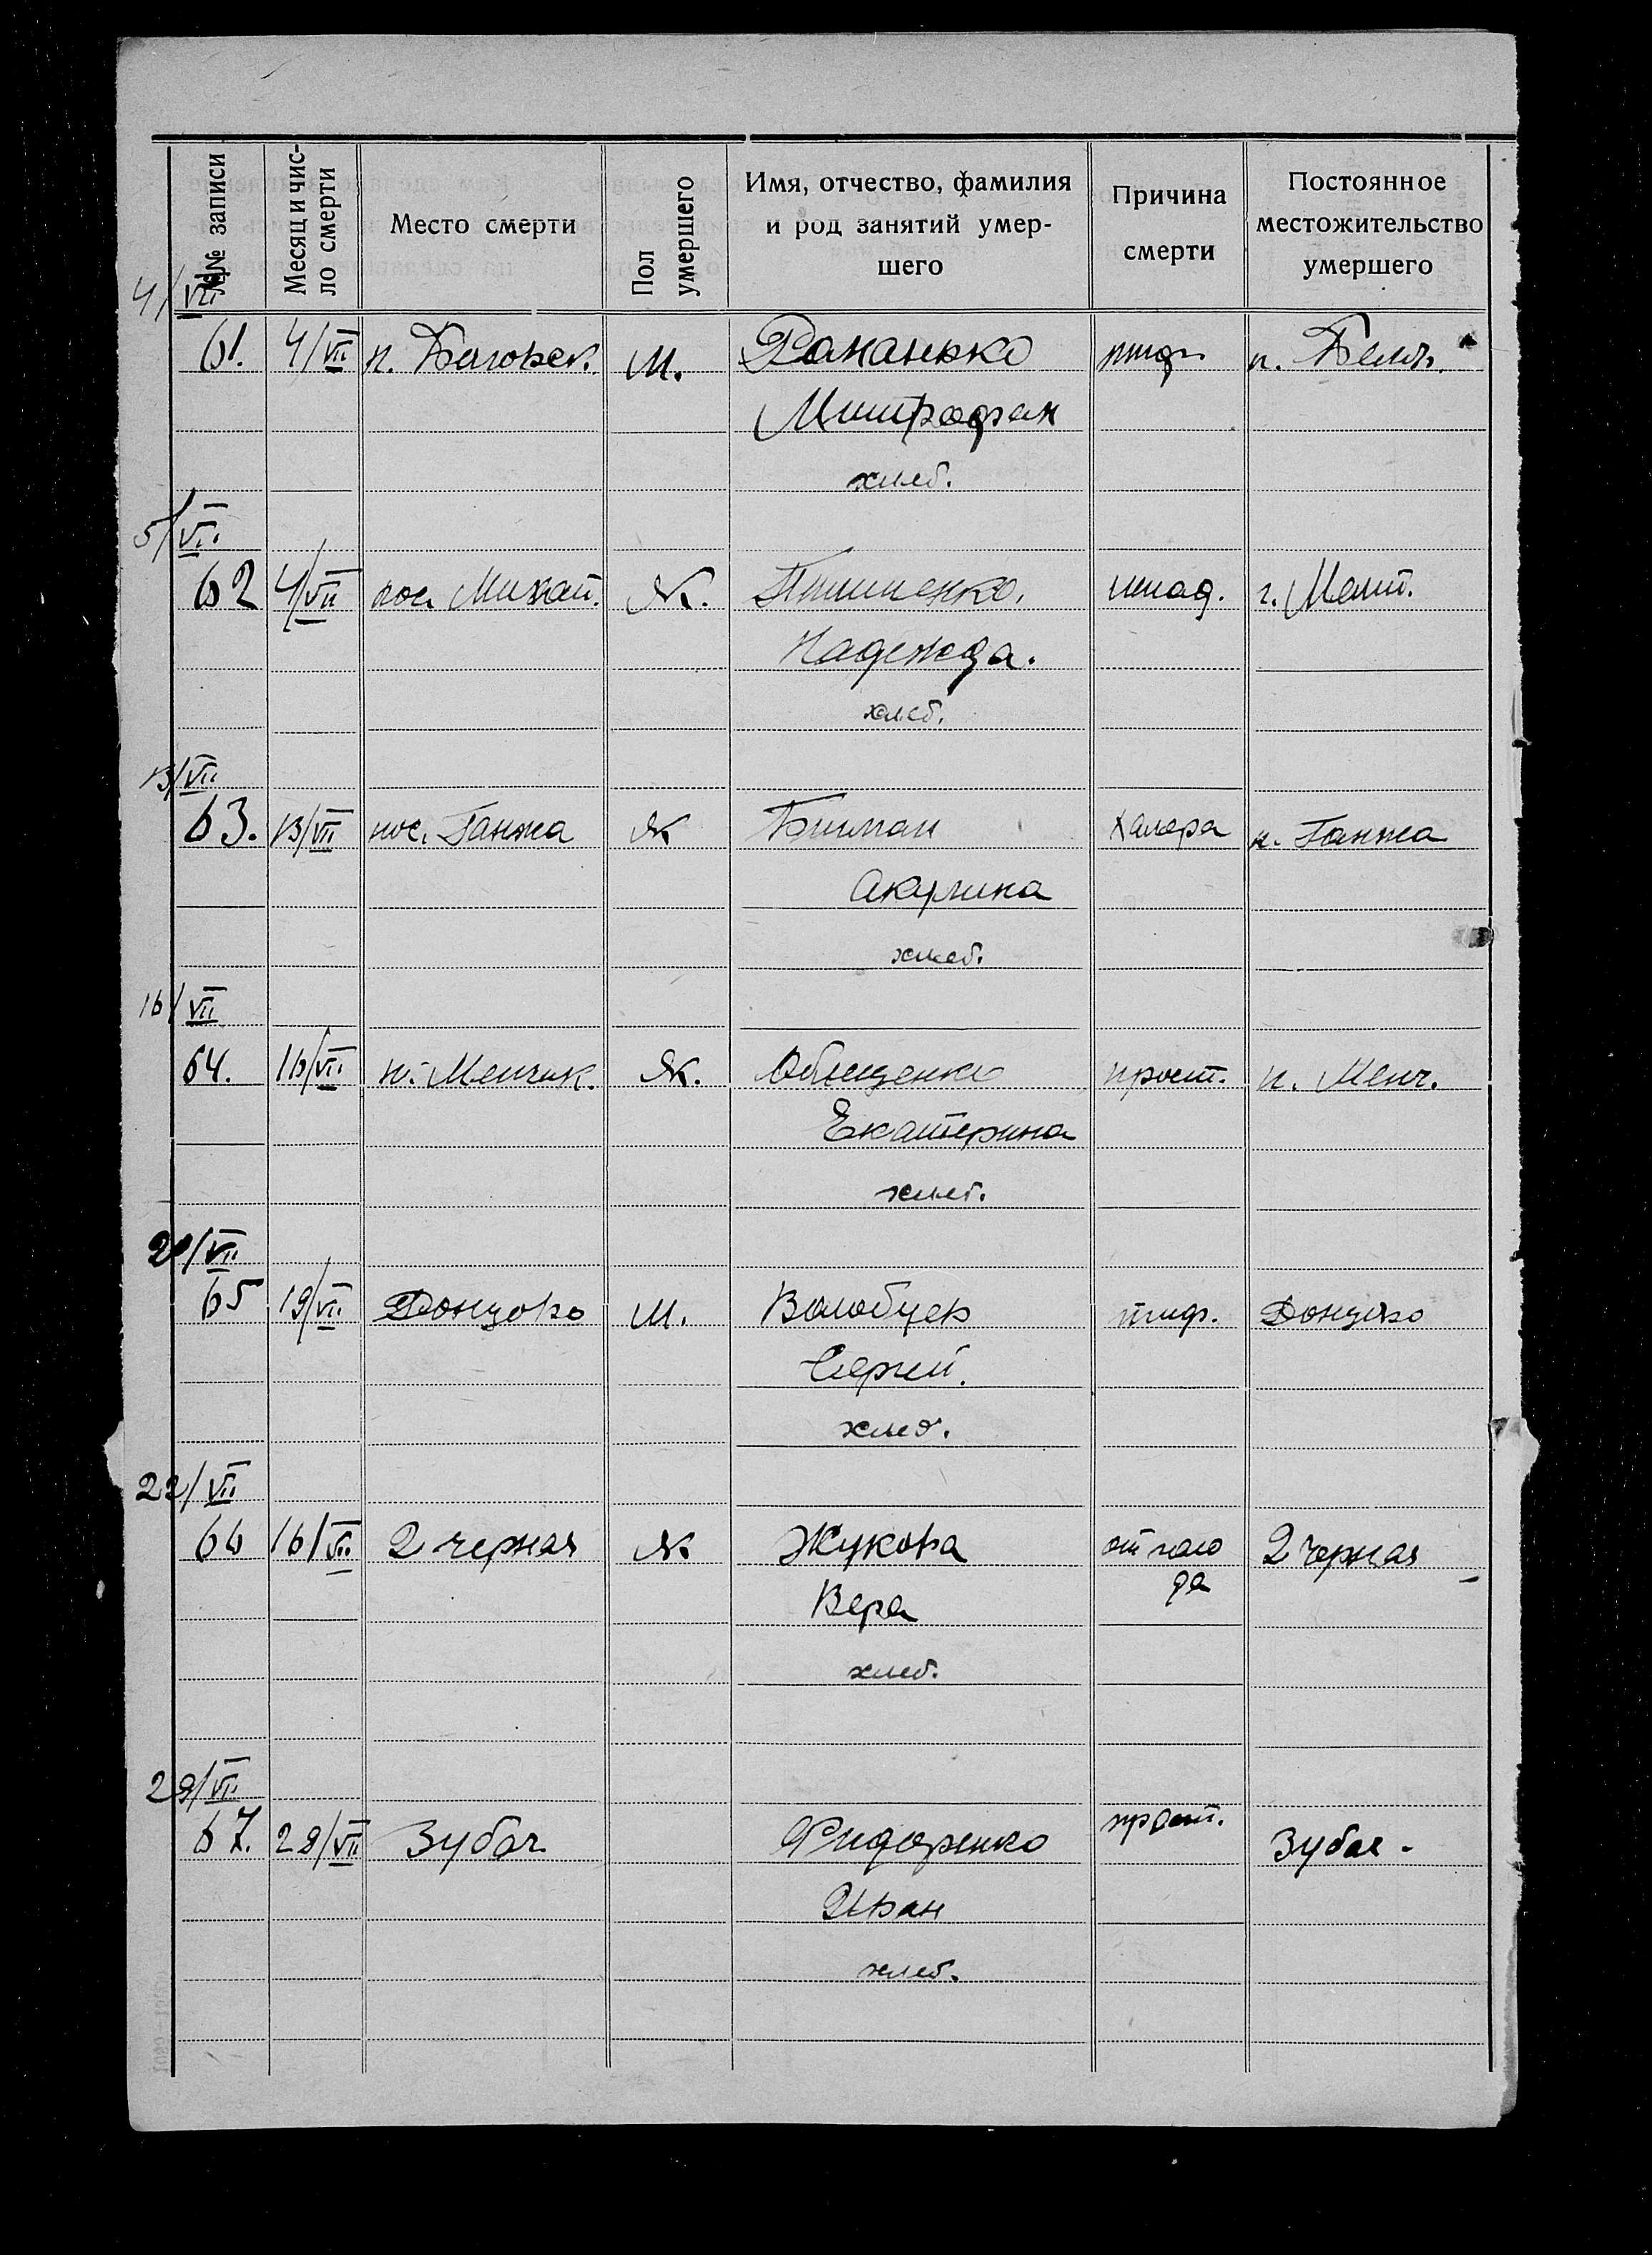 №№ записи
Месяц и чис-
ло смерти
Место смерти
Пол
умершего
Имя, отчество, фамилия
и род занятий умер-
шего
Причина
смерти
Постоянное
местожительство
умершего
4/VII
61. 4/VII п. М. тиф п.
Митрофан
хлеб.
5/VII
62 4/VII пос. Михай. Ж. г. Мелит.
Надежда.
хлеб.
13/VII
63. 13/VII пос. Ганжа Ж Халера п. Ганжа
Акулина
хлеб.
16/VII
64. 16/VII п. Менчик. Ж. Обищенко прост. п. Менч.
Екатерина
хлеб.
20/VII
65 19/VII Донцово М. Волобуев тиф. Донцово
Сергей.
хлеб.
22/VII
66 16/VII 2 черная Ж Жукова от голо 2 черная
да
Вера
хлеб.
29/VII
67. 28/VII Зубач Фидоренко прост. Зубач.
Иван
хлеб.